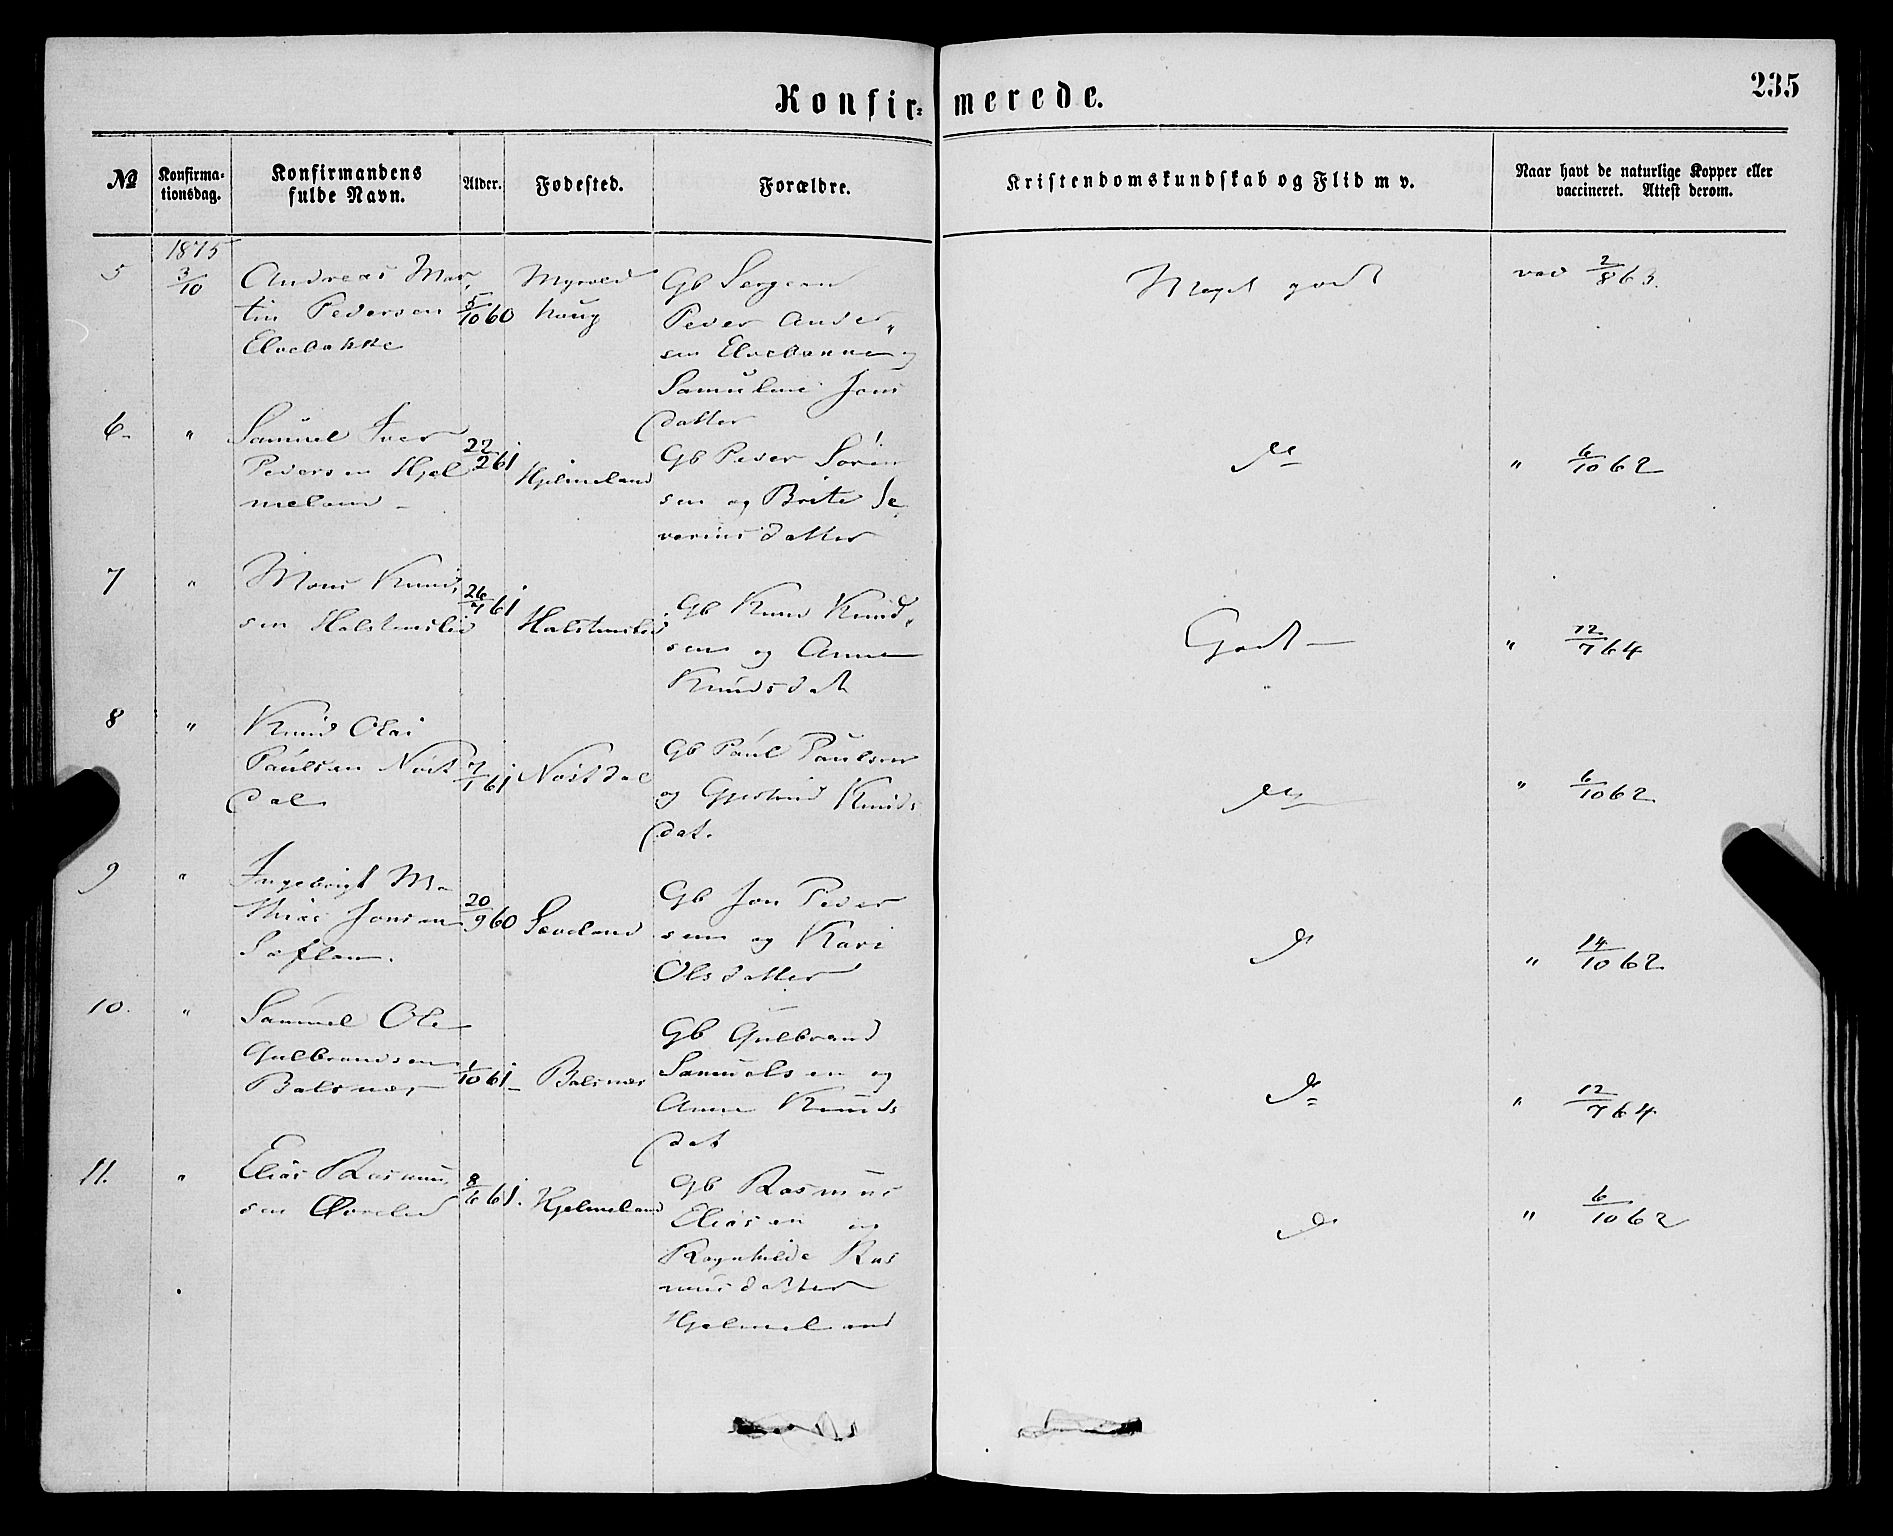 235
Konfir- merede.
№ Konfirma- tionsdag. Konfirmandens fulde Navn. Alder. Fødested. Forældre. Kristendomskundskab og Flid m v. Naar havt de naturlige Kopper eller vaccineret. Attest derom.
1875
5 3/10 Andreas Mar
tin Pedersen
Elvebakke
5/10 60
Myrvold
haug
Gb Sergean
Peder Ander„
sen Elvebakke og
Samuline Jons
datter
Meget godt
vac 2/8 63.
6. " Samuel Iver
Pedersen Hjel
meland
22/2 61
Hjelmeland
Gb Peder Søren
sen og Brite Se
verinsdatter
do
" 6/10 62
7 " Mons Knud,
sen Halstensli
26/7 61
Gb Knud Knud„
sen og Anna
Knudsdat
Godt
" 12/7 64
8 " Knud Olai
Paulsen Nøst
dal
7/1 61
Nøstdal
Gb Paul Paulsen
og Gjertrud Knuds
dat.
do
" 6/10 62
9 " Ingebrigt Ma
thias Jonsen
20/9 60
Sæveland
Gb Jon Peder
sen og Kari
Olsdatter
do
" 14/10 62
10. " Samuel Ole
Gulbrandsen
Balsnæs
1/10 61
Balsnæs
Gb Gulbrand
Samuelsen og
Anne Knuds
dat
do
" 12/7 64
11. " Elias Rasmus,
sen
8/6 61.
Hjelmeland
Gb Rasmus
Eliasen
Ragnhilde Ras
musdatter
Hjelmeland
do
" 6/10 62